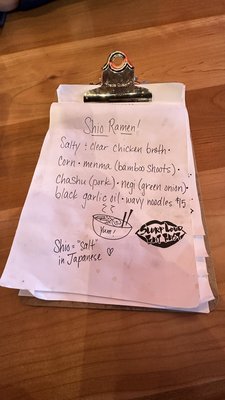 Shio Ramen!
Salty + clear chicken broth ·
Corn · menma (bamboo shoots) ·
Chashu (pork) · negi (green onion) ·
black garlic oil · wavy noodles $15
Yum!
Shio = "Salt"
in Japanese ♡